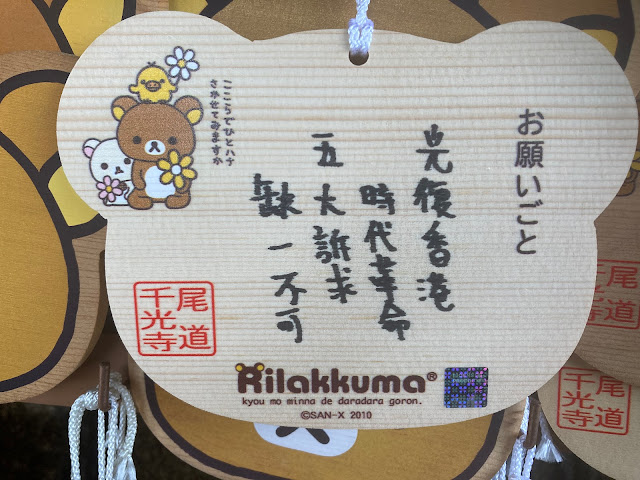 お願いごと
光復香港
時代革命
五大訴求
缺一不可
ここらでひとハナ
さかせてみますか
尾道
千光寺
Rilakkuma®
kyou mo minna de daradara goron.
©SAN-X 2010
尾道
千光寺